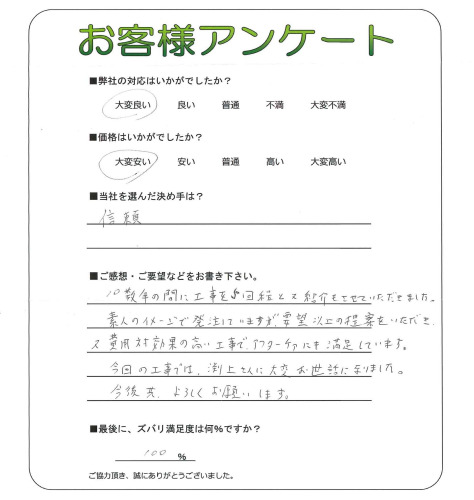 お客様アンケート
■弊社の対応はいかがでしたか？
大変良い 良い 普通 不満 大変不満
■価格はいかがでしたか？
大変安い 安い 普通 高い 大変高い
■当社を選んだ決め手は？
信頼
■ご感想・ご要望などをお書き下さい。
10数年の間に工事を5回 紹介もさせていただきました。
素人のイメージで発注していますが、要望以上の提案をいただき、
又費用対効果の高い工事で、アフターケアにも満足しています。
今回の工事では、渕上さんに大変お世話になりました。
今後共、よろしくお願いします。
■最後に、ズバリ満足度は何％ですか？
100 ％
ご協力頂き、誠にありがとうございました。